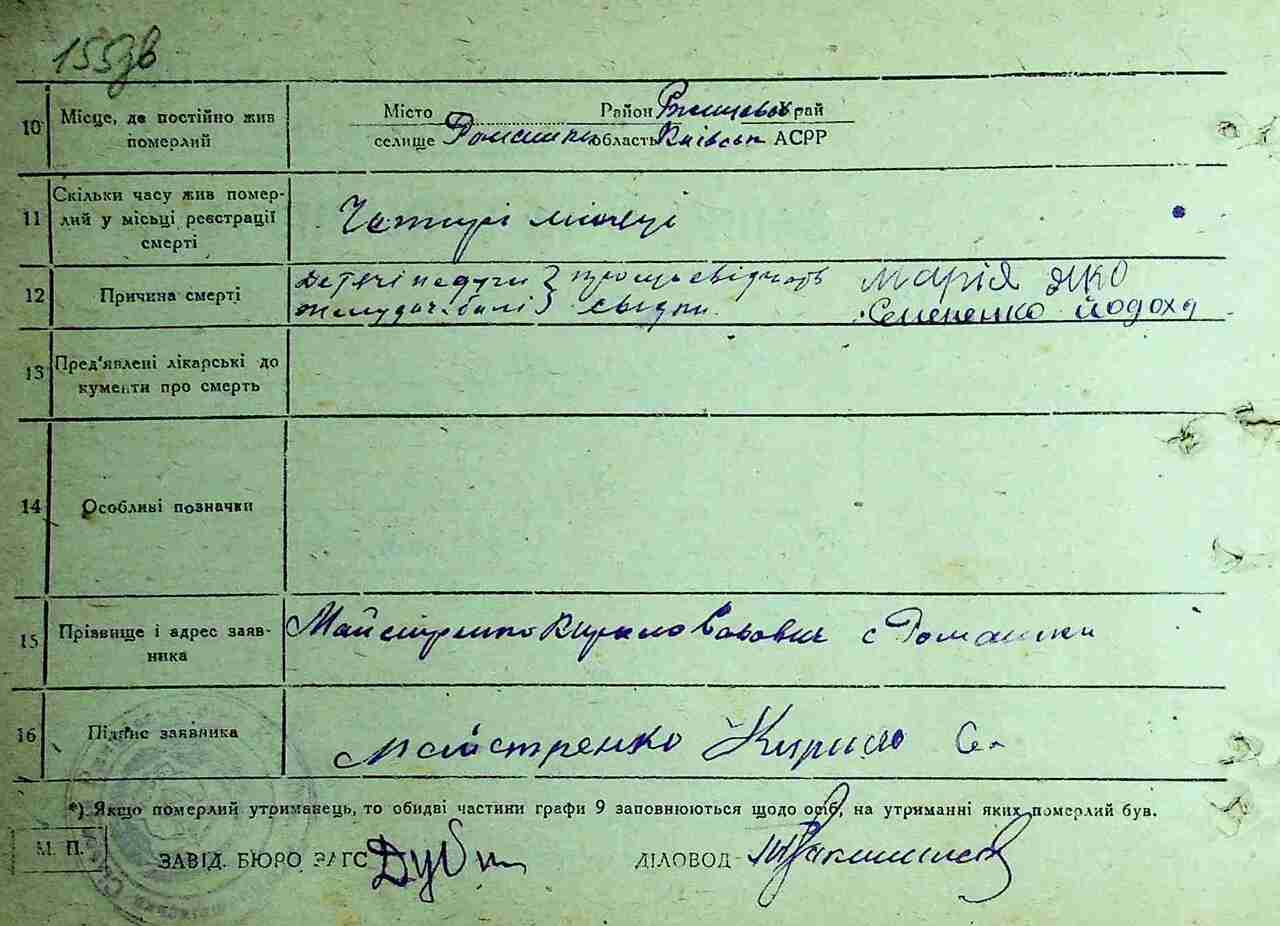 155зв
10 Місце, де постійно жив померлий
Місто Район Ржищевск Край
селище Ромашки область Київськ АСРР
11 Скільки часу жив помер-
лий у місьці реєстрації
смерті
Чотирі місяці
12 Причина смерті
Детячі недуги про що свідчать Марія
желудач. болі свідки. Семененко Йодоха
13 Пред'явлені лікарські до
кументи про смерть
14 Особливі позначки
15 Прізвище і адрес заяв-
ника
Майстренко Кирило Савович с Ромашки
16 Підпис заявника
Майстренко Кирило С.
*) Якщо померлий утриманець, то обидві частини графи 9 заповнюються щодо осіб, на утриманні яких померлий був.
М. П.
ЗАВІД. БЮРО ЗАГС ДІЛОВОД